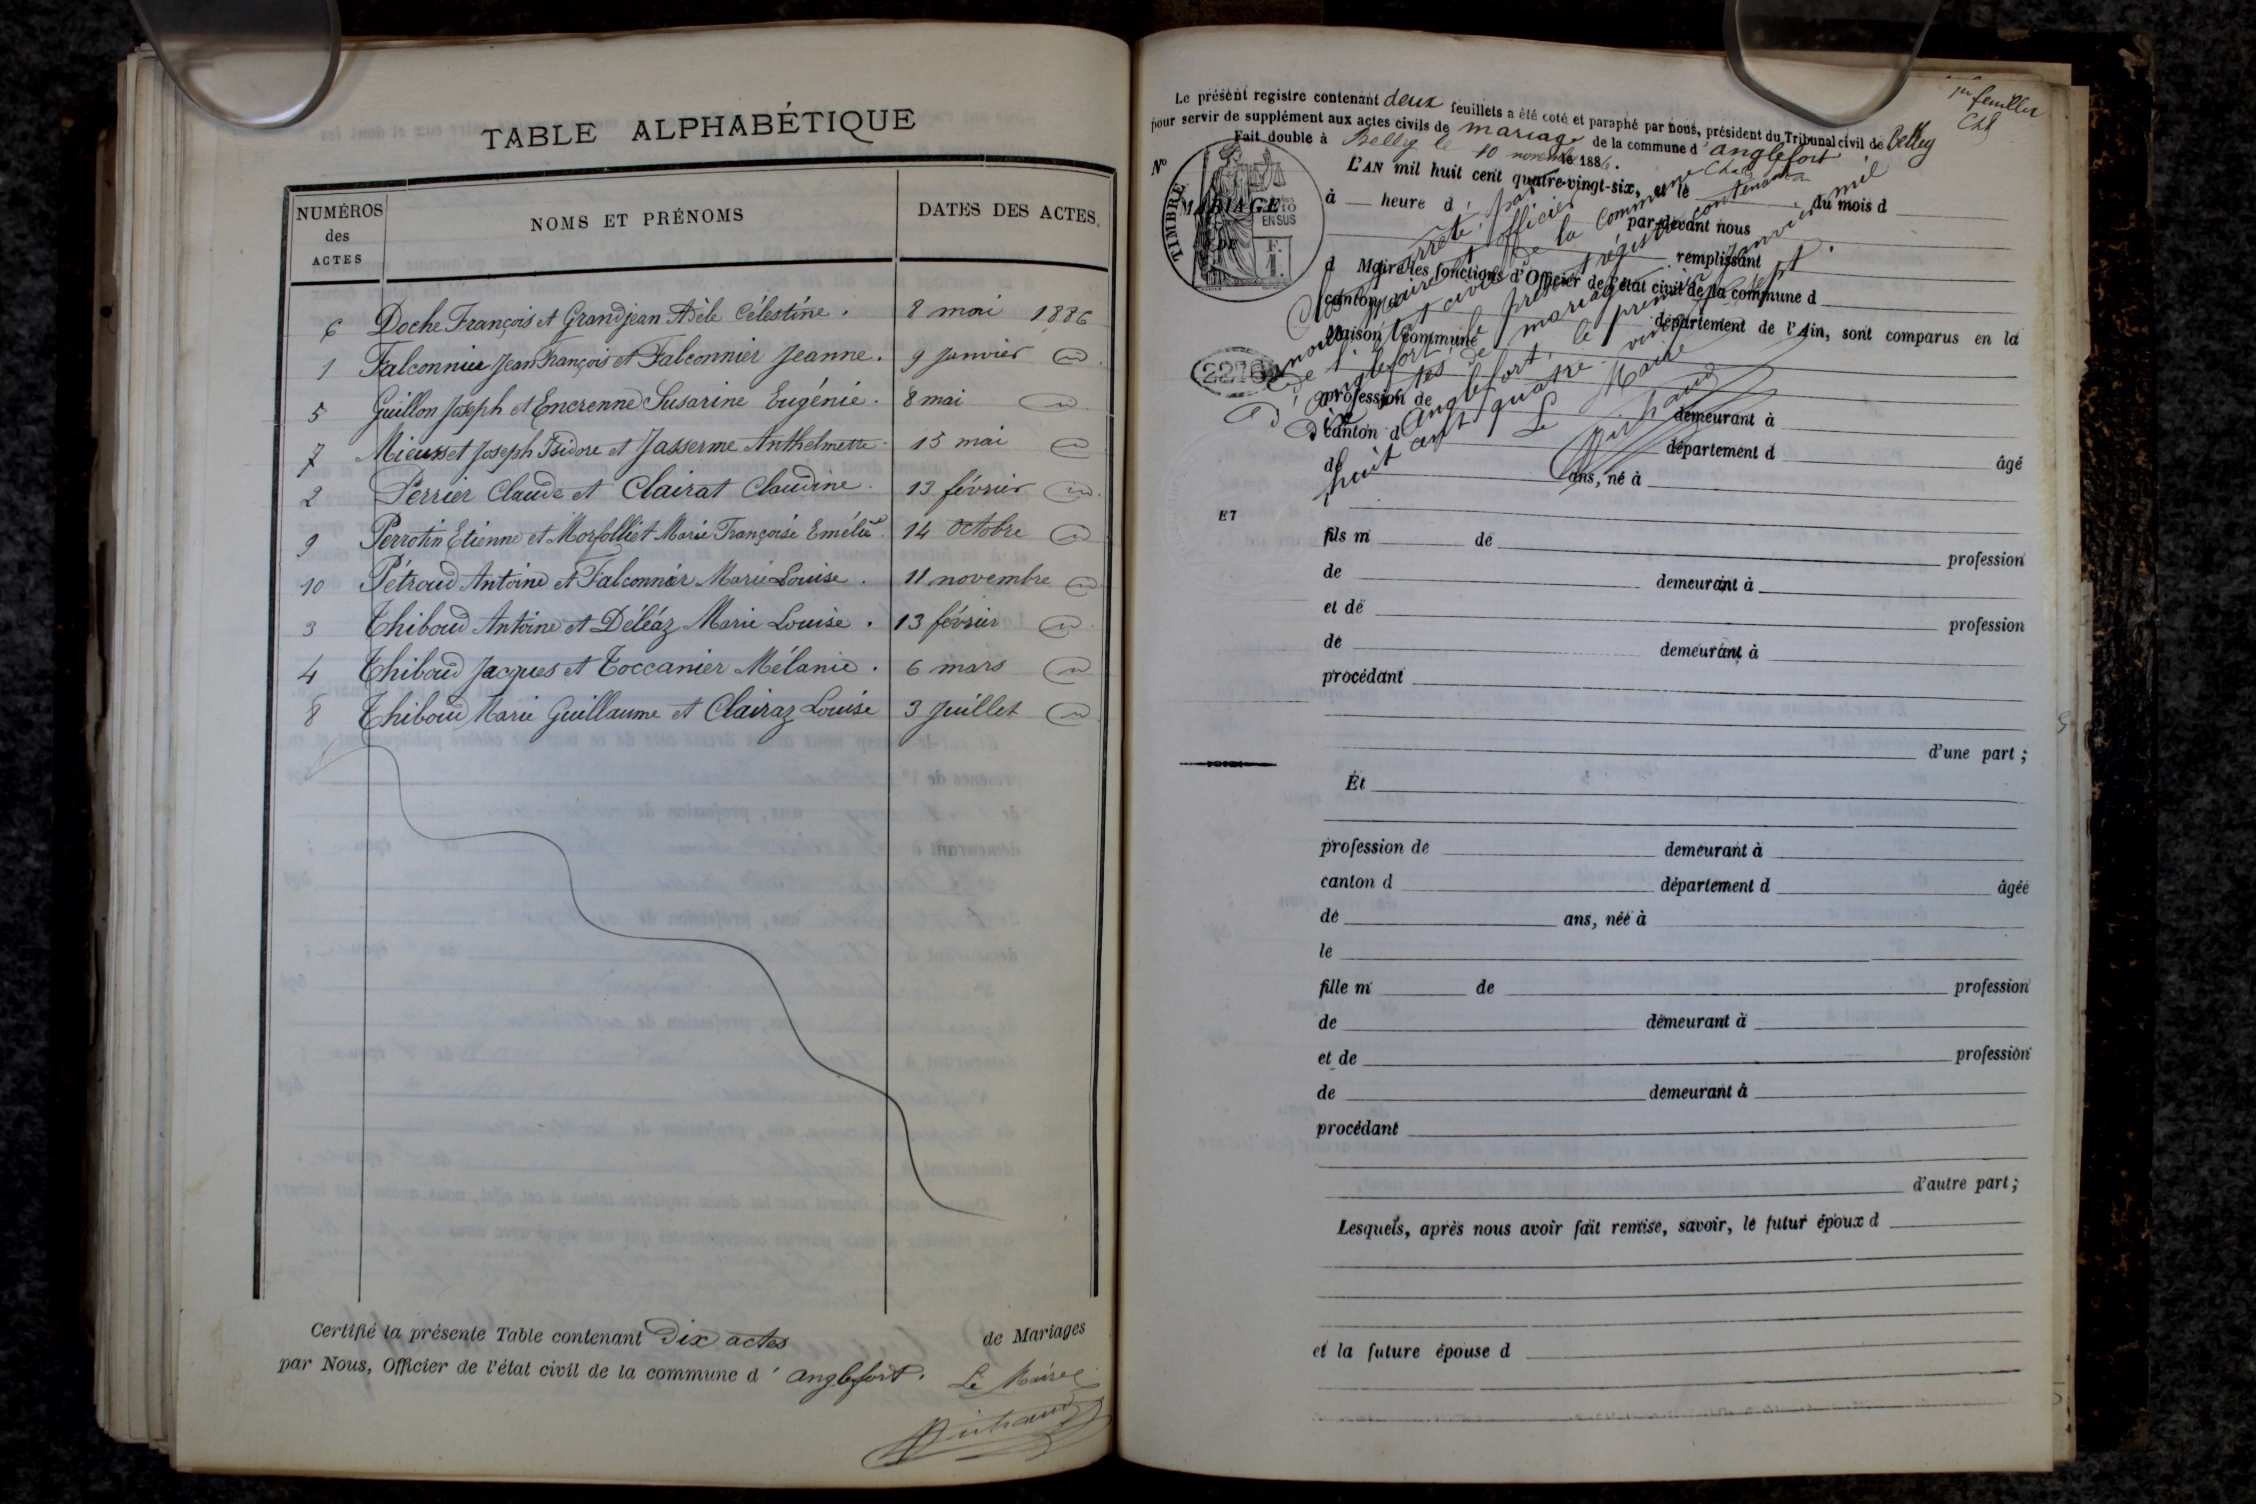 TABLE ALPHABÉTIQUE
NUMÉROS des ACTES
NOMS ET PRÉNOMS
DATES DES ACTES.
6 Doche François et Grandjean Adèle Célestine. 8 mai 1886
1 Falconnier Jean François et Falconnier Jeanne. 9 Janvier
5 Guillon Joseph et Encrenne Susarine Eugénie. 8 mai
7 Mieusset Joseph Isidore et Jasserme Anthelmette 15 mai
2 Perrier Claude et Clairat Claudine. 13 février
9 Perrotin Etienne et Morfolliet Marie Françoise Emélie 14 Octobre
10 Pétroud Antoine et Falconnier Marie Louise. 11 novembre
3 Thiboud Antoine et Déléaz Marie Louise. 13 février
4 Thiboud Jacques et Toccanier Mélanie. 6 mars
8 Thiboud Marie Guillaume et Clairaz Louise 3 Juillet
Certifié la présente Table contenant Dix actes de Mariages
par Nous, Officier de l'état civil de la commune d' anglefort. Le Maire
1er feuillet
Le présent registre contenant deux feuillets a été coté et paraphé par nous, président du Tribunal civil de Belley
pour servir de supplément aux actes civils de mariage de la commune d' anglefort
Fait double à Belley le 10 novembre 1886.
No
TIMBRE
MARIAGE
DE
EN SUS
2216
L'AN mil huit cent quatre-vingt-six, et le du mois d
à heure d par-devant nous
d Maire remplissant
les fonctions d'Officier de l'état civil de la commune d
canton d département de l'Ain, sont comparus en la
maison commune
profession de demeurant à
canton d département d âgé
de ans, né à
Clos et arrêté par
maire et officier
de l'état civil de la commune
d'anglefort, le présent registre contenant
dix actes de mariage
Anglefort, le premier Janvier mil
huit cent quatre vingt sept.
Le Maire
ET
fils m de profession
de demeurant à
et de profession
de demeurant à
procédant
d'une part ;
Et
profession de demeurant à
canton d département d âgée
de ans, née à
le
fille m de profession
de demeurant à
et de profession
de demeurant à
procédant
d'autre part ;
Lesquels, après nous avoir fait remise, savoir, le futur époux d
et la future épouse d